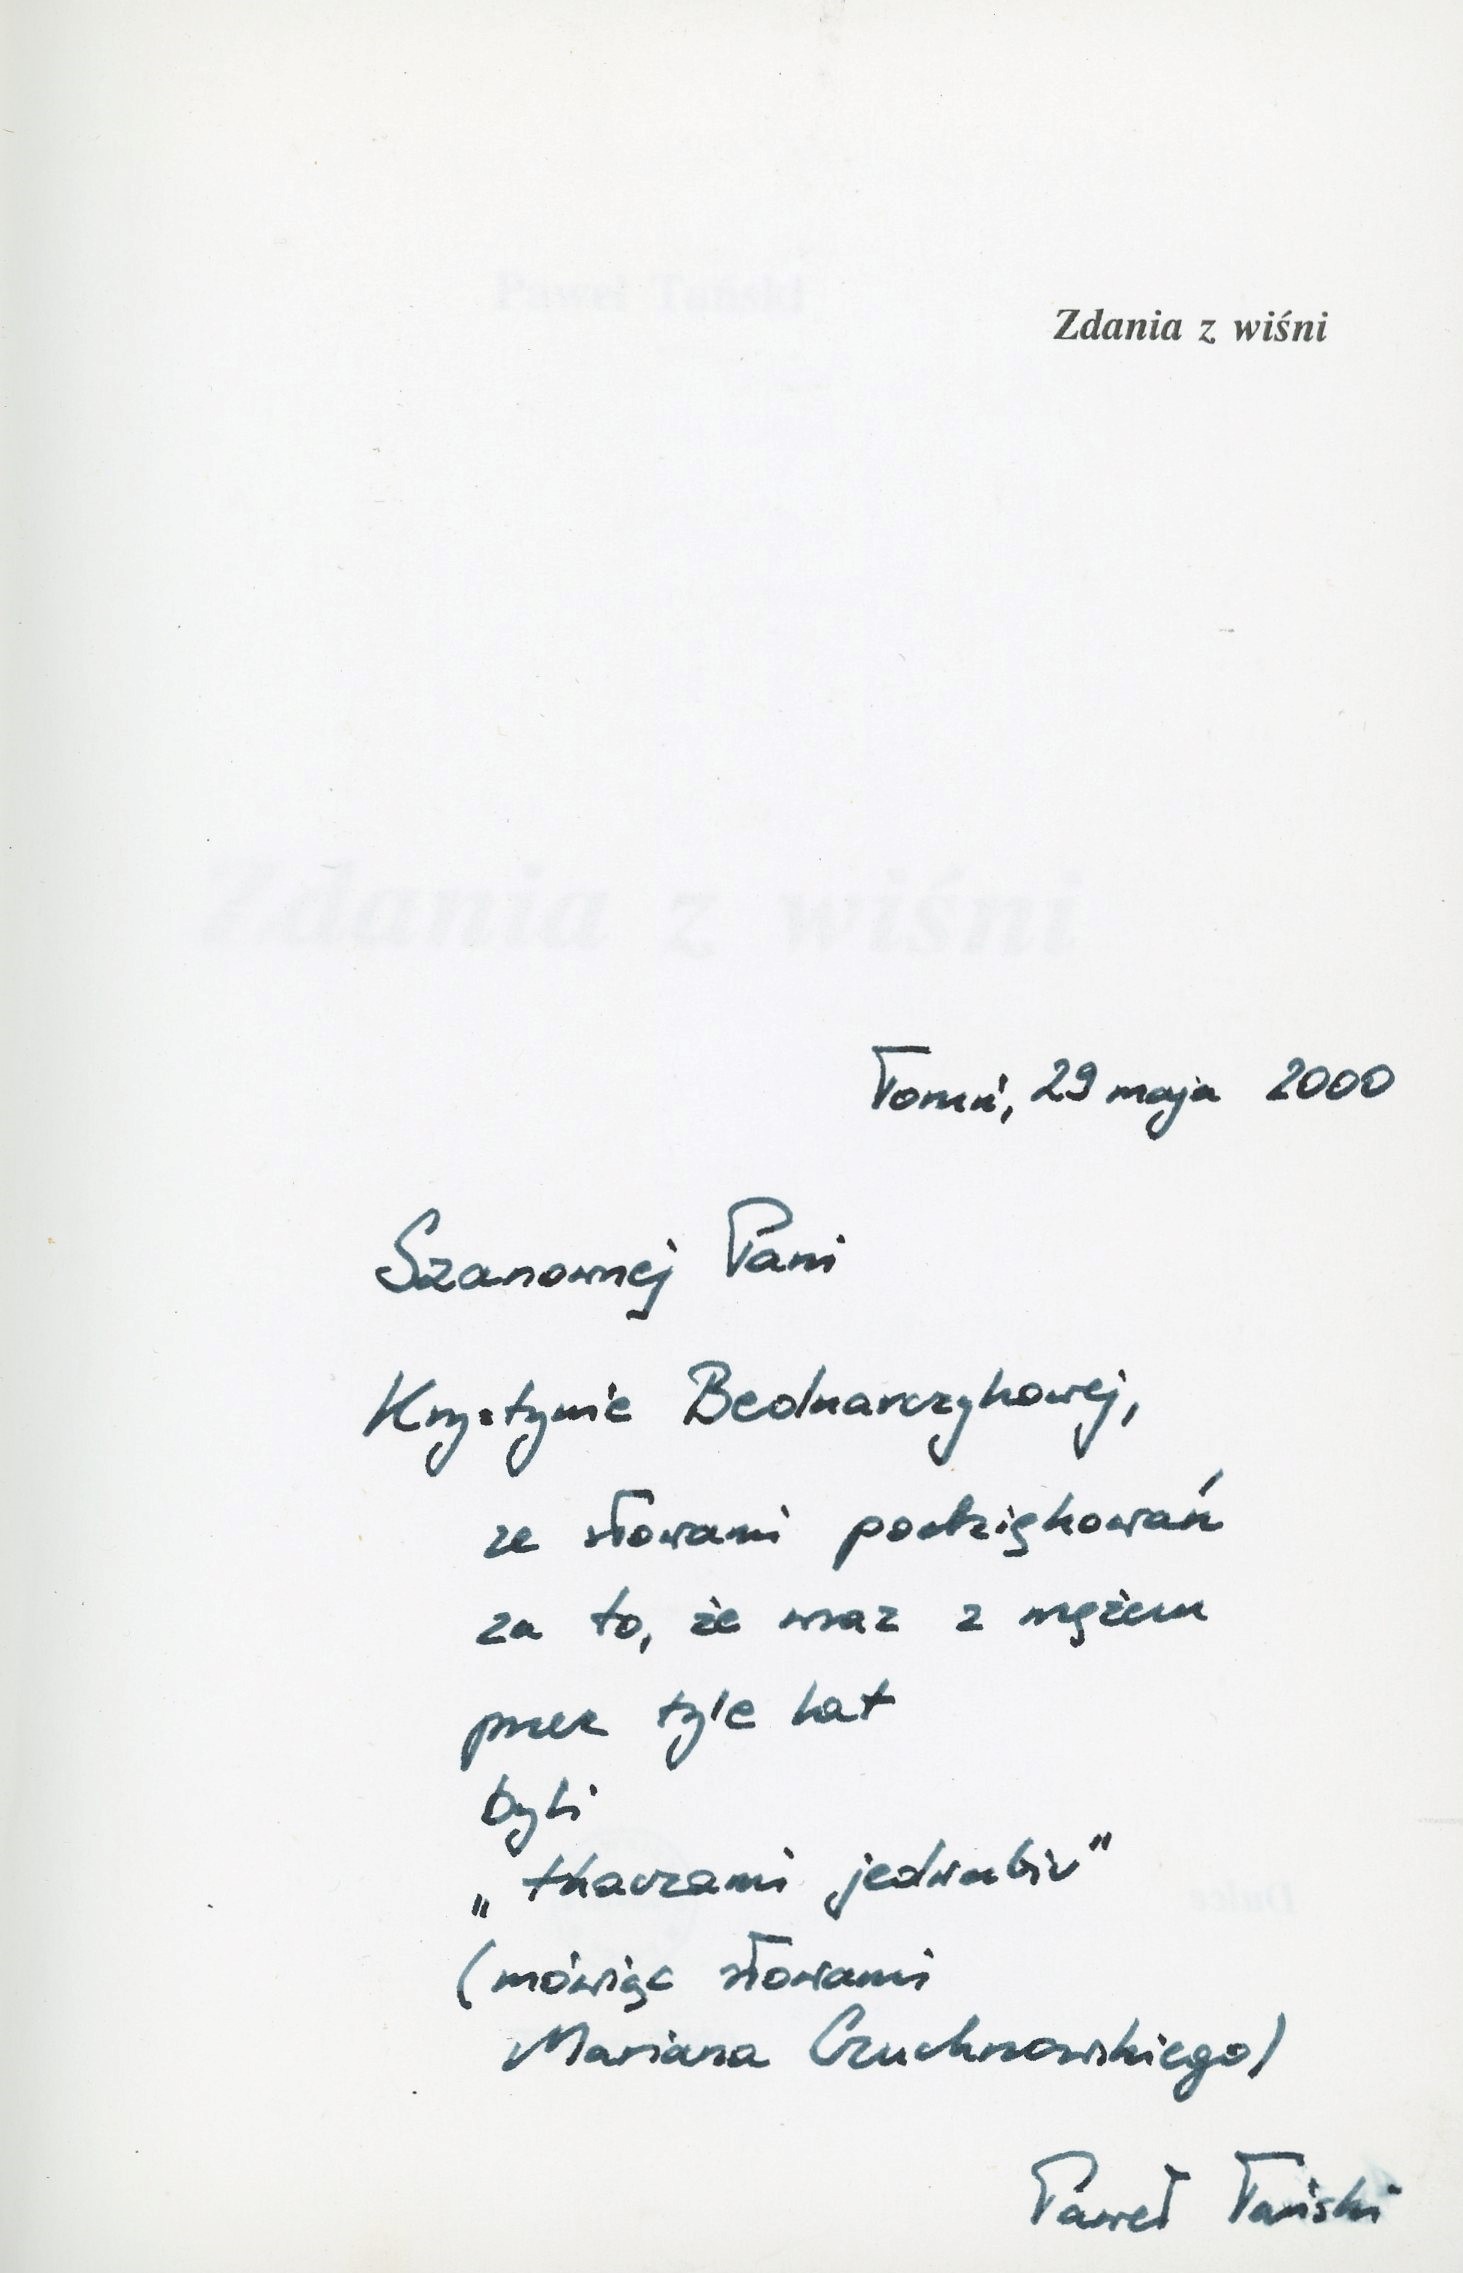 Paweł Tański
Zdania z wiśni
Zdania z wiśni
Toruń, 29 maja 2000
Szanownej Pani
Krystynie Bednarczykowej,
ze słowami podziękowań
za to, że wraz z mężem
przez tyle lat
byli
„tkaczami jedwabiu"
(mówiąc słowami
Mariana Czuchnowskiego)
Paweł Tański